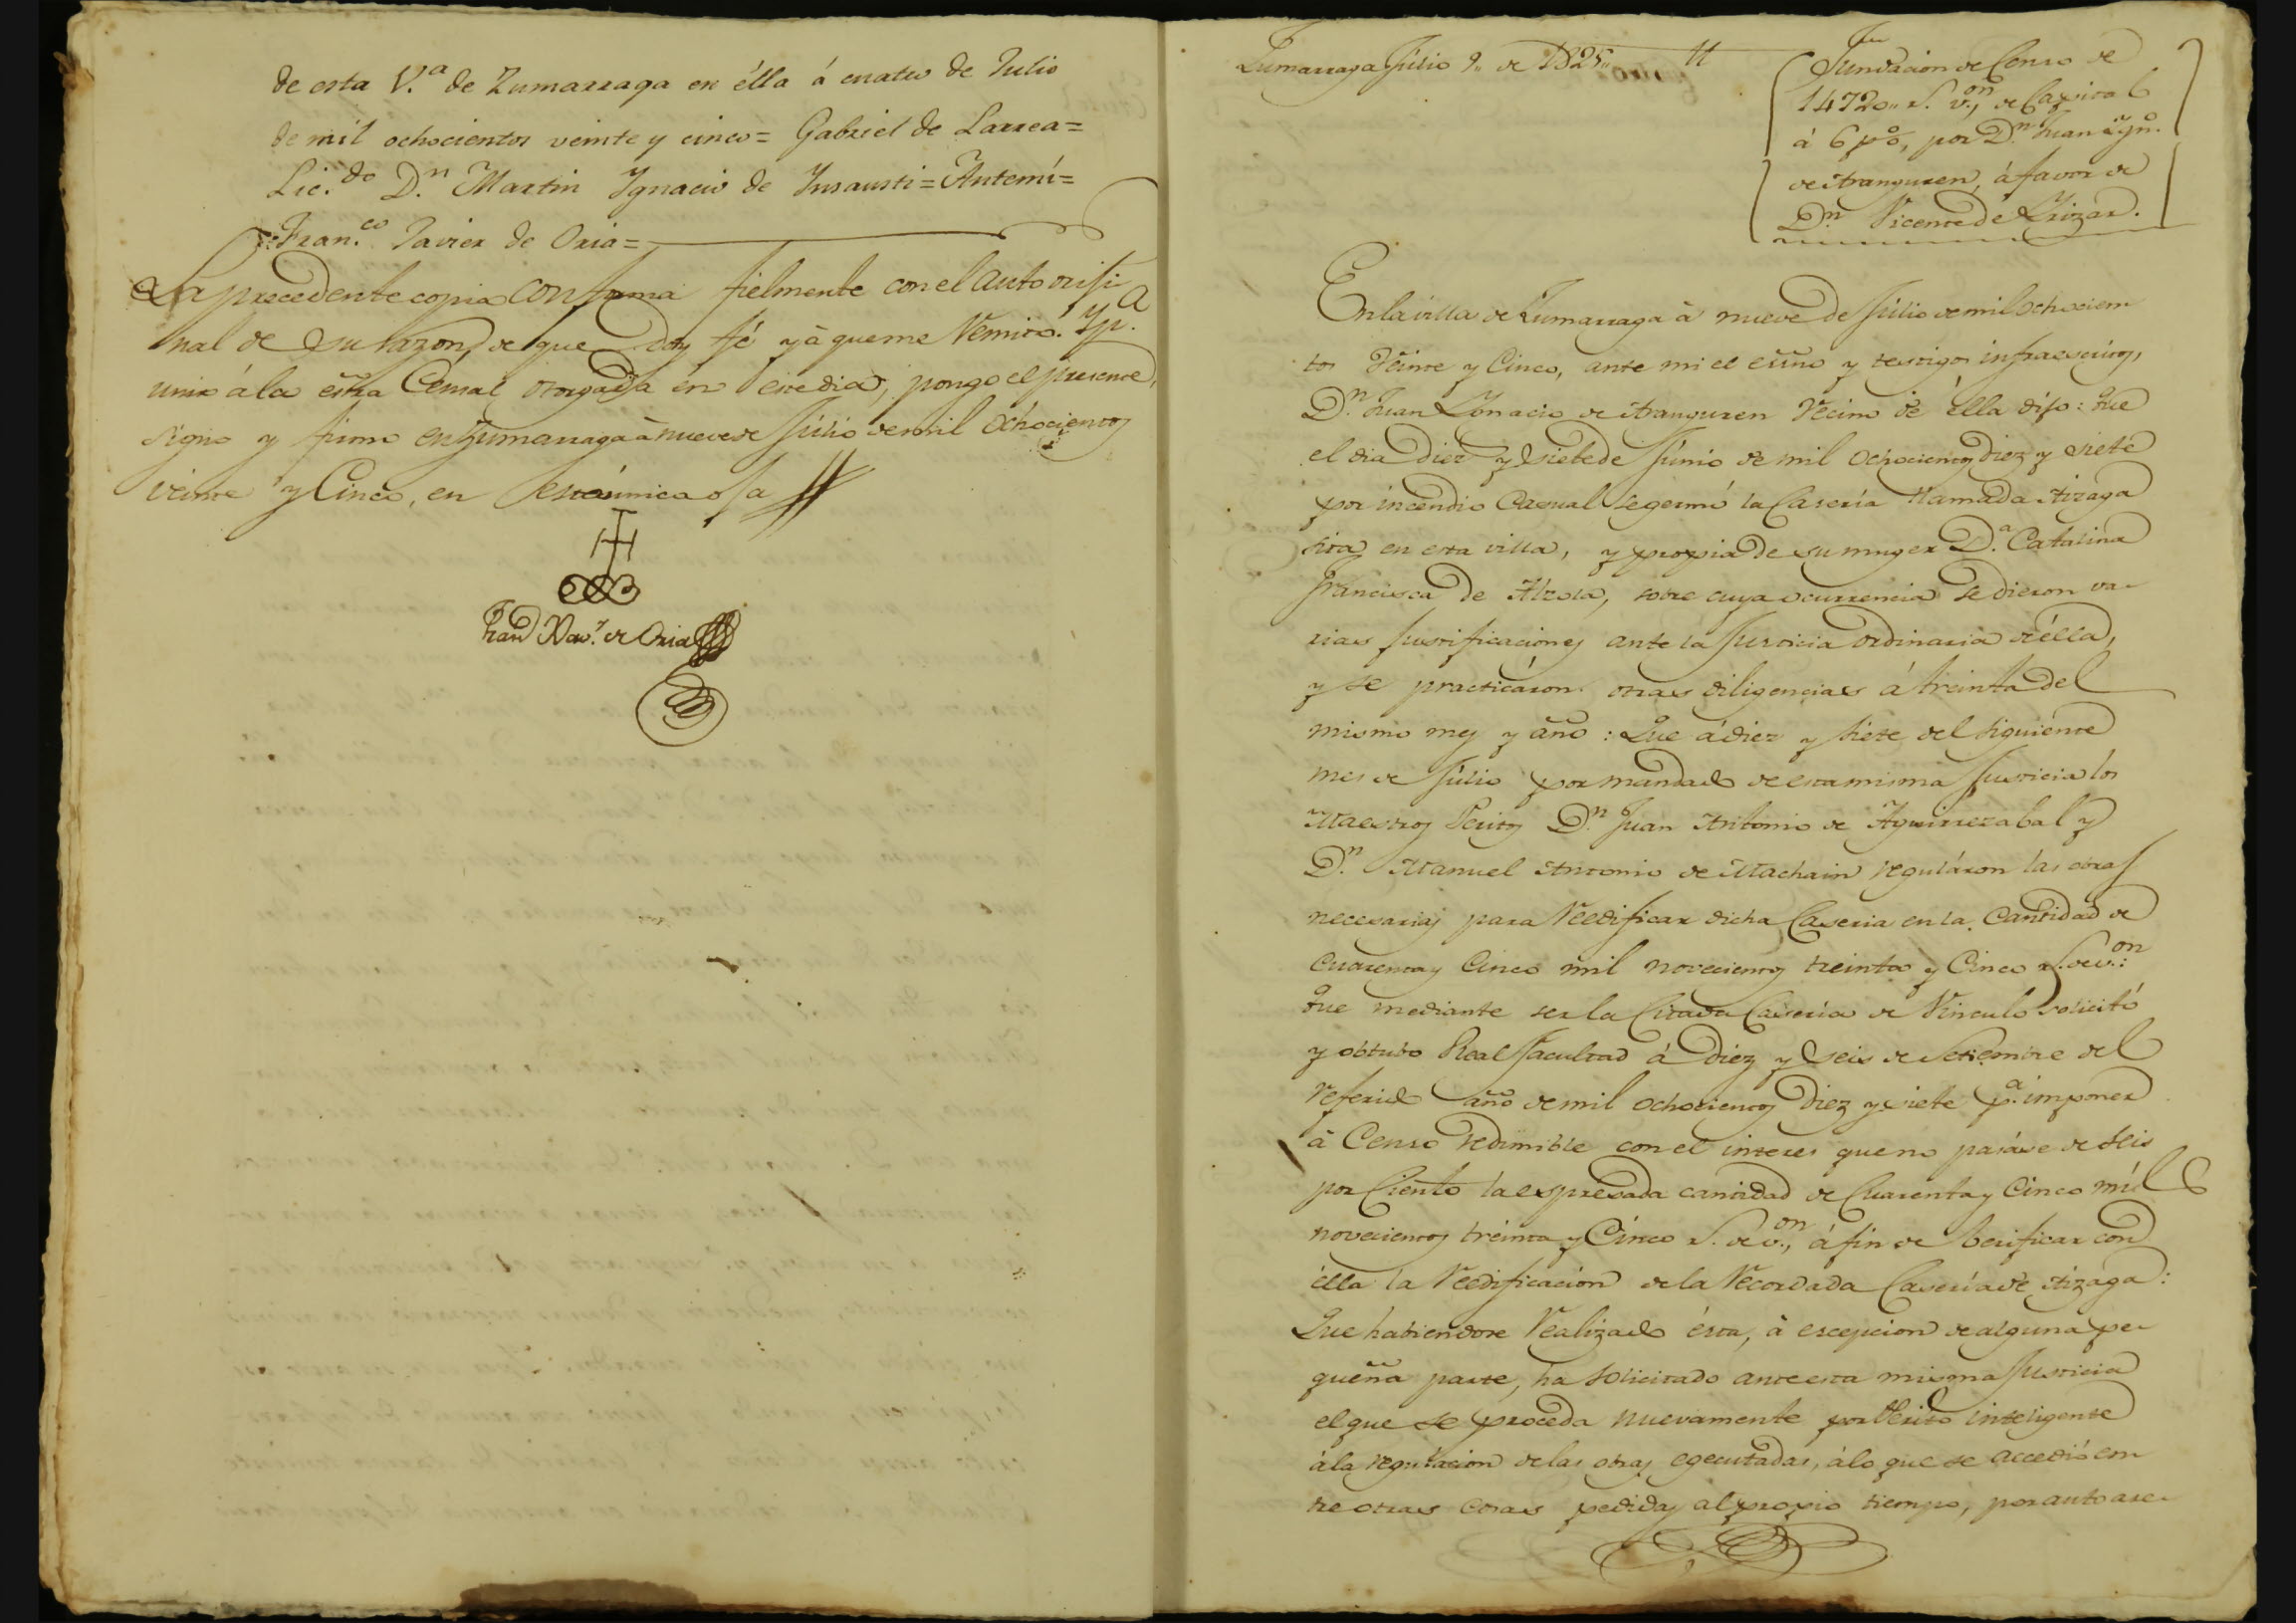 de esta V.a de Zumarraga en élla á cuatro de Julio
de mil ochocientos veinte y cinco= Gabriel de Larrea=
Lic.do D.n Martin Ygnacio de Ynsausti=Antemí=
Fran.co Javier de Oria=
La precedente copia conforma fielmente con el auto origi-
nal de su razon, de que doy fé y à que me remito. Y p.a
unir á la esr̃a Censal otorgada en este dia, pongo el presente,
signo y firmo en Zumarraga à nueve de Júlio de mil ochocientos
veinte y Cinco, en esta única oja
Fran.co Xav.r de Oria
Zumarraga Júlio 9,, de 1825,,
Fundacion de Censo de
14720,, r.s v.on, de Capital
á 6 p%, por D.n Juan Ygn.o
de Aranguren, á favor de
D.n Vicente de Yrizar.
En la villa de Zumarraga à nueve de Júlio de mil Ochocien
tos Veinte y Cinco, ante mi el esñno y testigos infraescritos,
D.n Juan Ygnacio de Aranguren Vecino de élla dijo: Que
el dia Diez y Siete de Júnio de mil ochocientos diez y siete
por incendio Casual se quemó la Casería llamada Aizaga
sita en esta villa, y propia de su muger D.a Catalina
Francisca de Alzola, sobre cuya ocurrencia se dieron va-
rias justificaciones ante la Justicia Ordinaria de élla,
y se practicáron otras diligencias á treinta del
mismo mes y año: Que á diez y siete del siguiente
mes de Júlio por mandado de esta misma Justicia los
Maestros Peritos D.n Juan Antonio de Aguirrezabal y
D.n Manuel Antonio de Machain reguláron las obras
necesarias para reedificar dicha Caseria en la Cantidad de
Cuarenta y Cinco mil novecientos treinta y Cinco r.s de v.on:
Que mediante ser la Citada Casería de Vinculo solicitó
y obtubo Real facultad á Diez y Seis de Setiembre del
referido año de mil ochocientos Diez y siete p.a imponer
à Censo redimible con el interes que no pasáse de Seis
por Ciento la expresada cantidad de Cuarenta y Cinco mil
novecientos treinta y Cinco r.s de v.on, á fin de berificar con
élla la reedificacion de la recordada Casería de Aizaga:
Que habiendose realizado ésta, à escepcion de alguna pe-
queña parte, ha solicitado ante esta misma Justicia
el que se proceda nuevamente por Perito inteligente
á la regulacion de las obras egecutadas, á lo que se accedió en
tre otras cosas pedidas al propio tiempo, por auto ase-